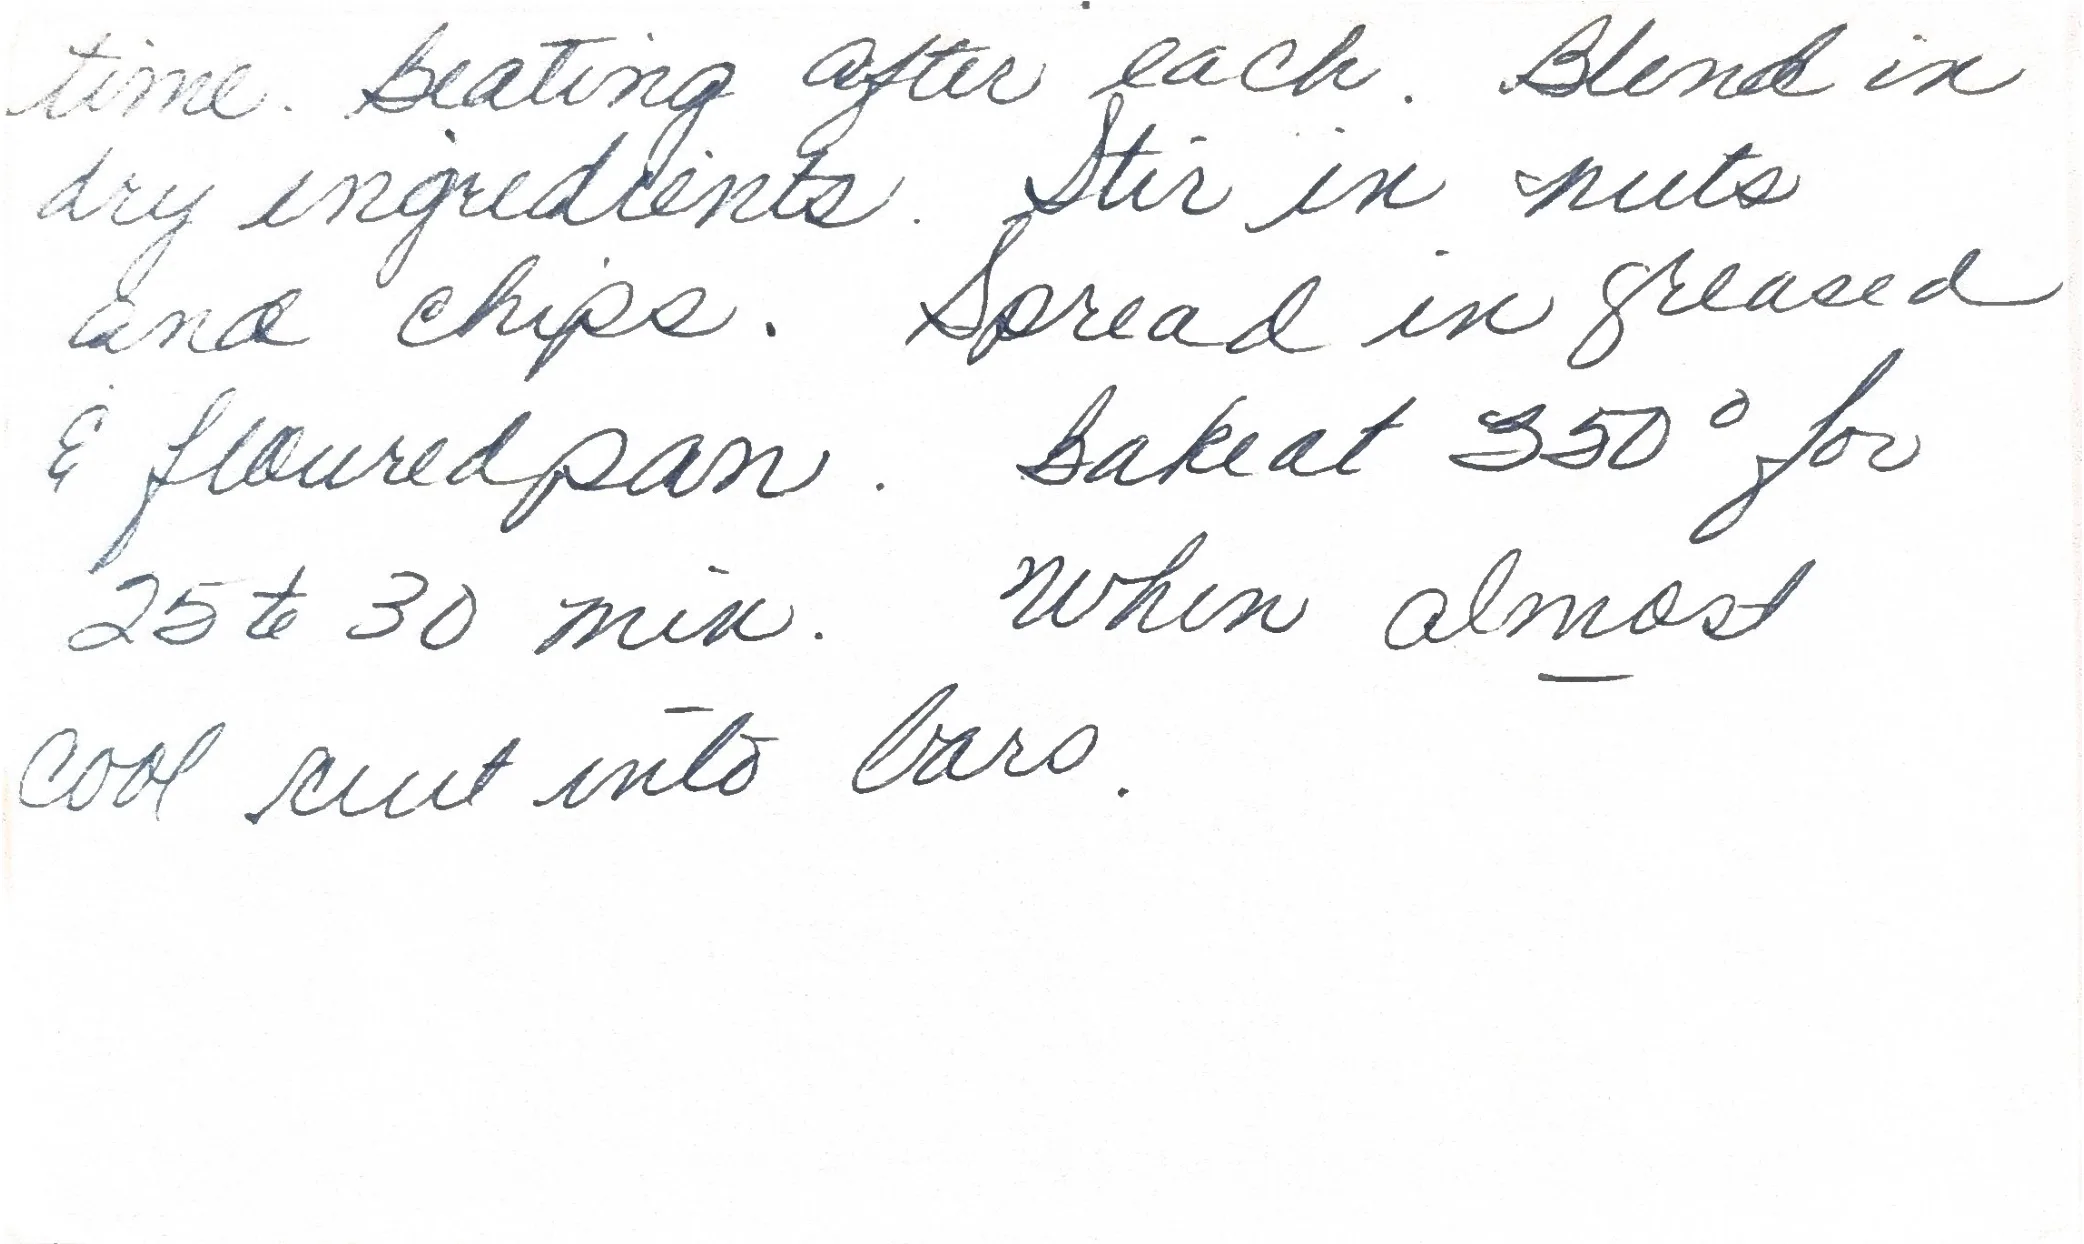 time. Beating after each. Blend in
dry ingredients. Stir in nuts
and chips. Spread in greased
& floured pan. Bake at 350° for
25 to 30 min. When almost
cool cut into bars.